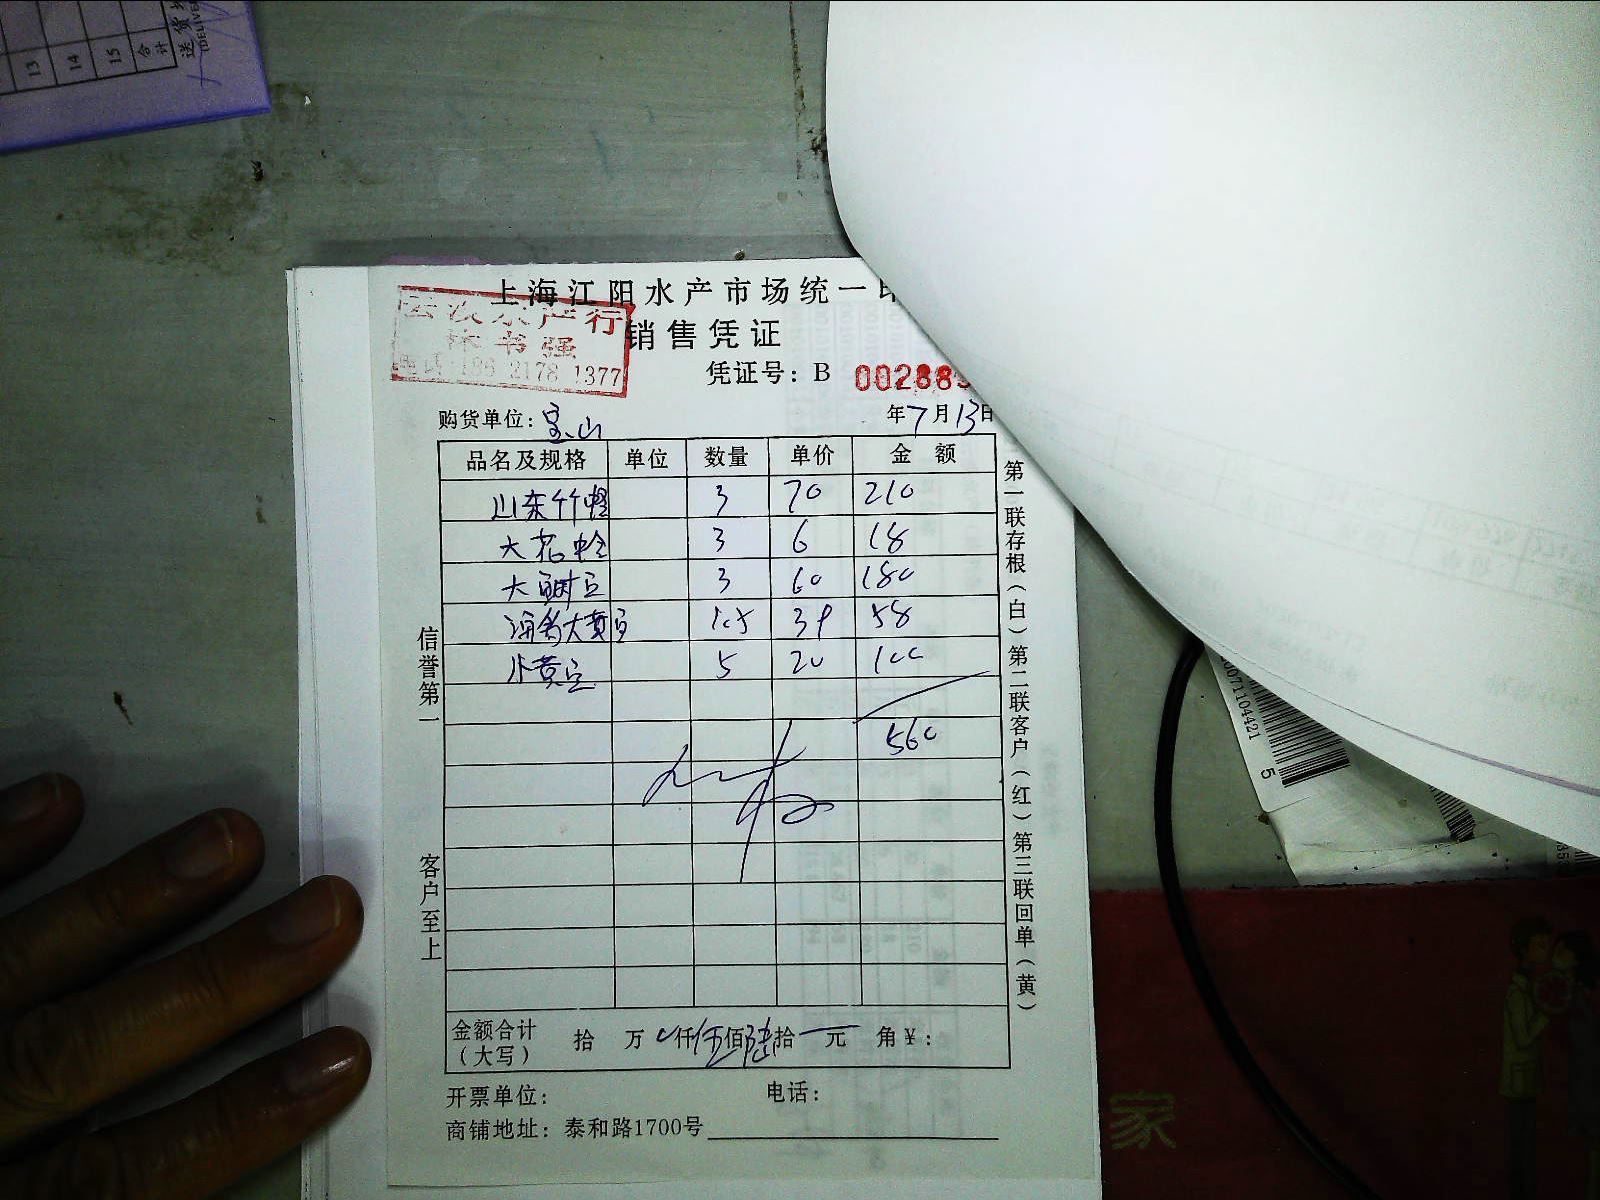 13
14
15
合计
上海江阳水产市场统一
水产行
书强
186 2178 1377
销售凭证
凭证号：B 00288
购货单位：宝山
年7月13日
品名及规格 单位 数量 单价 金额
山东竹蛏 3 70 210
大花 3 6 18
大 3 60 180
大黄 1.5 39 58
小黄 5 20 100
560
金额合计（大写） 拾 万 仟伍佰陆拾 元 角￥：
开票单位： 电话：
商铺地址：泰和路1700号
信誉第一 客户至上
第一联存根（白）第二联客户（红）第三联回单（黄）
0071104421
5
家